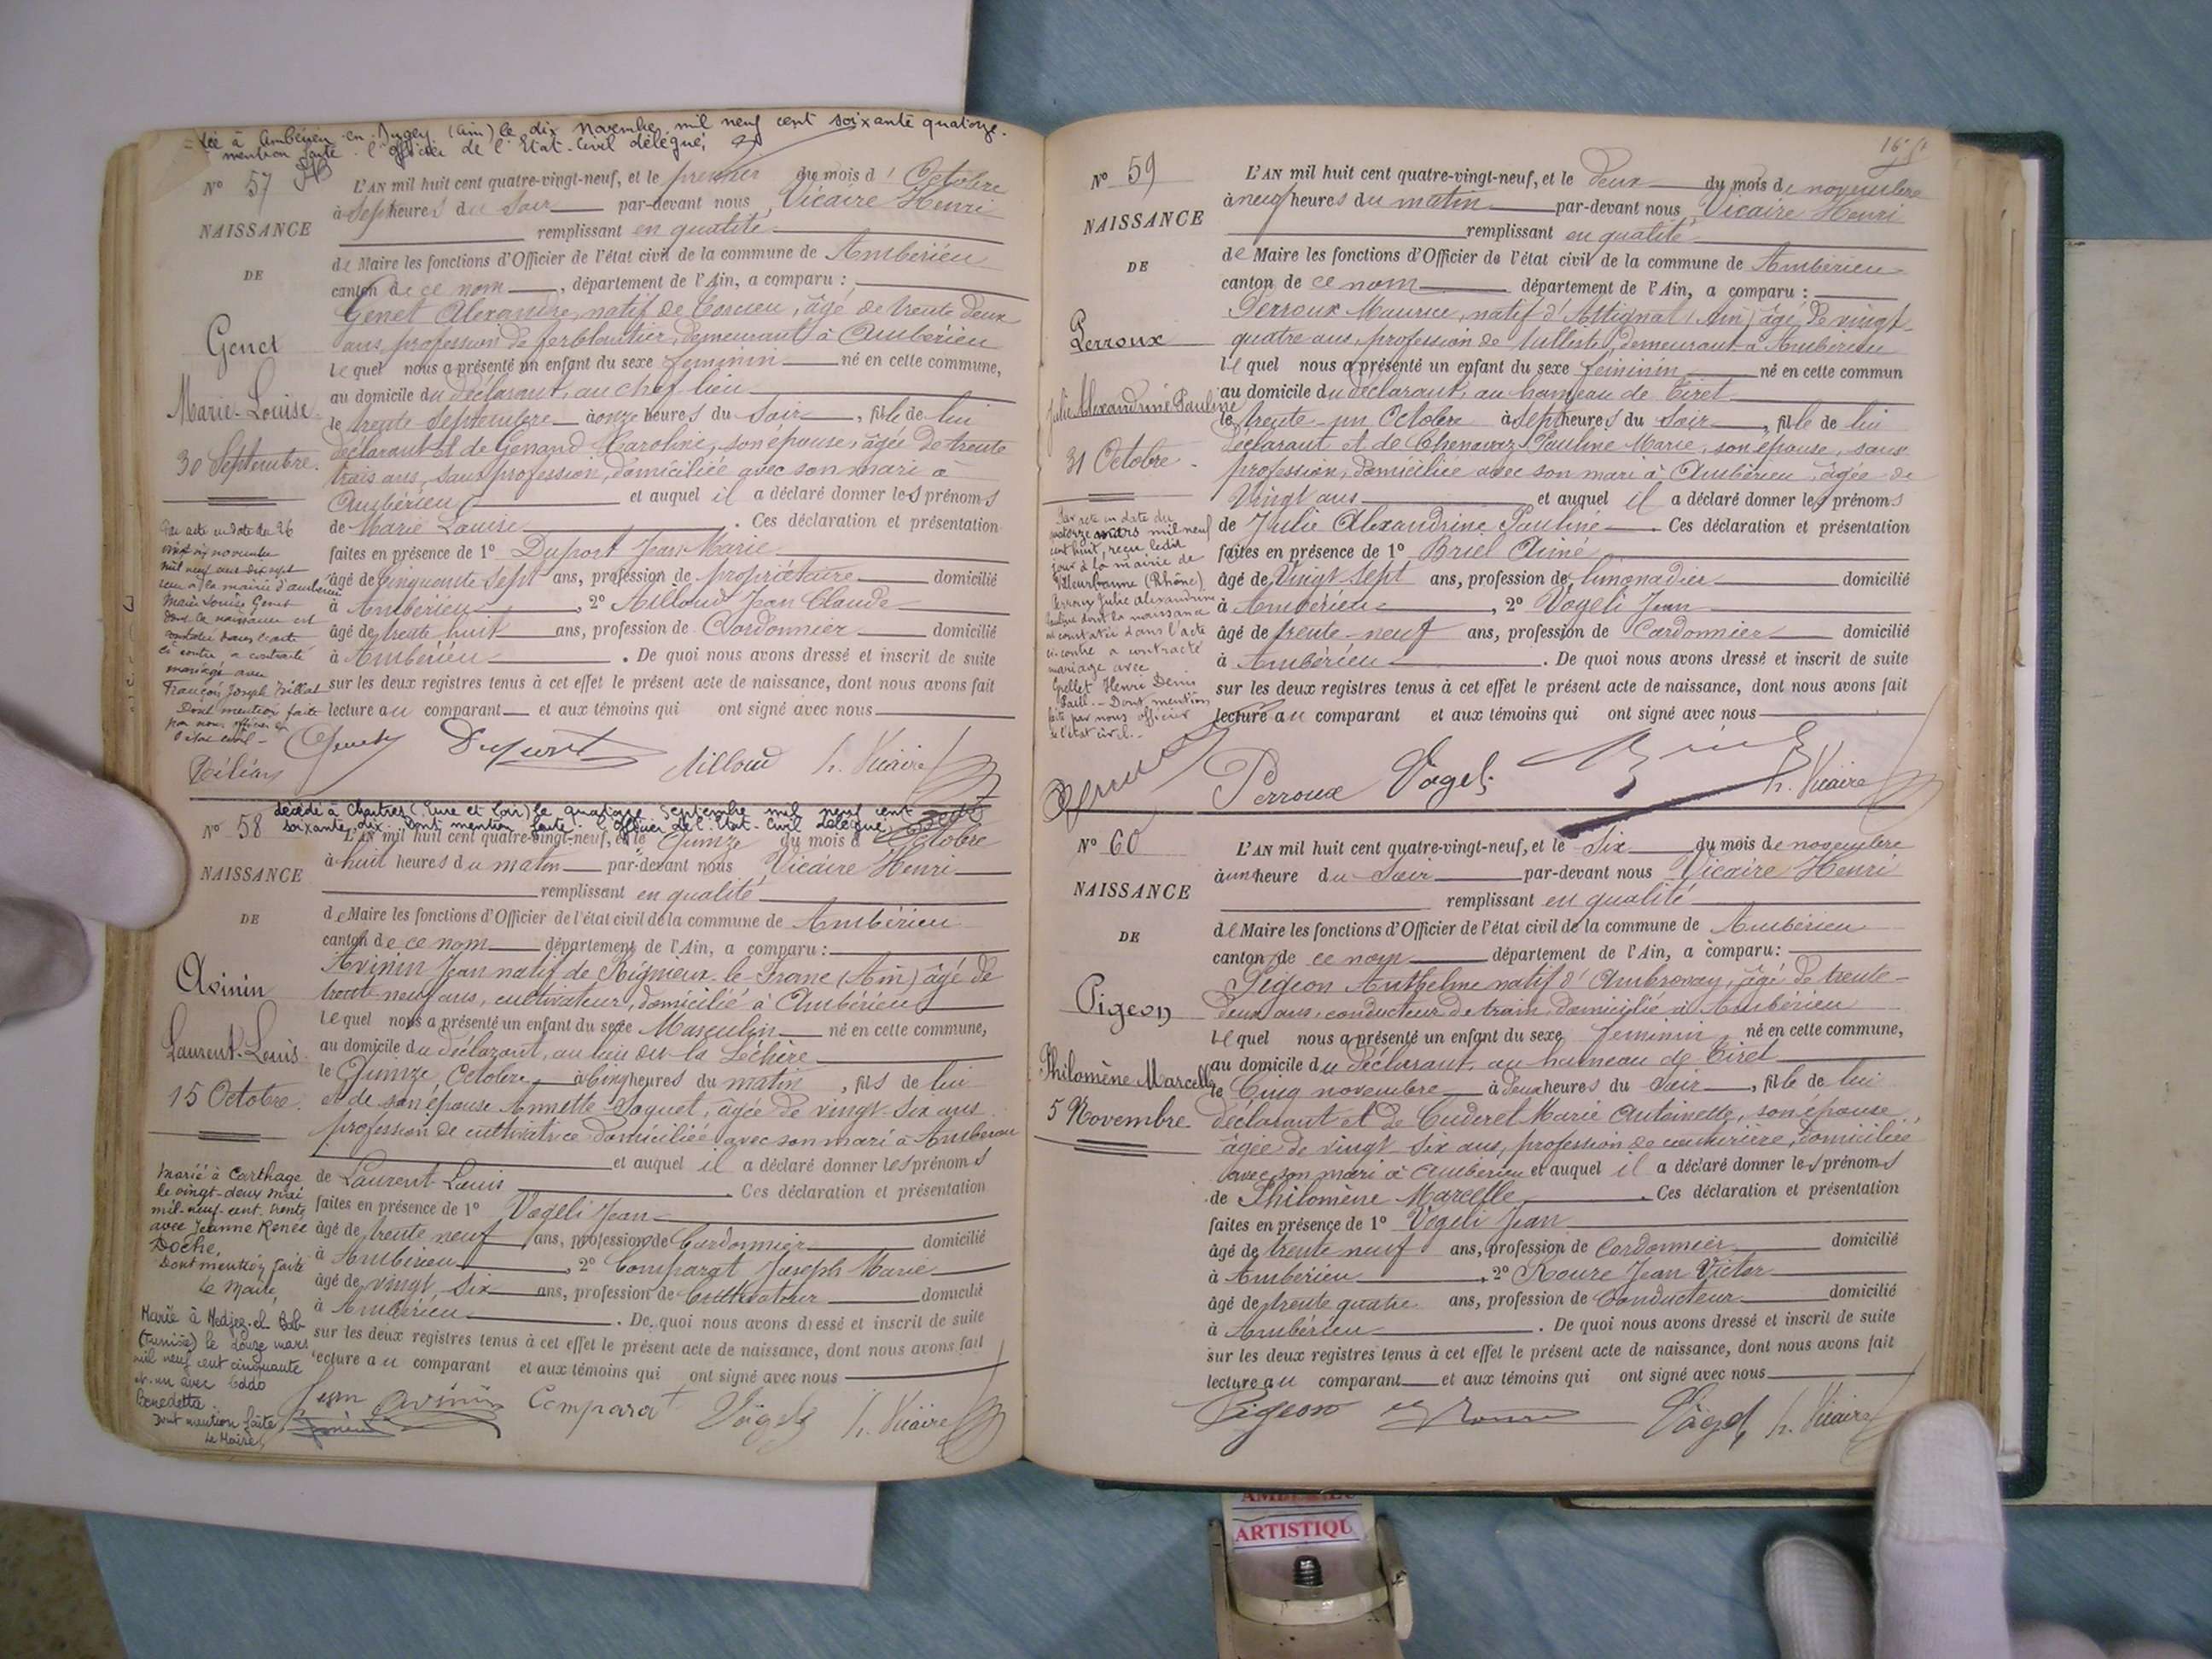 à Ambérieu en Bugey (Ain) le dix novembre mil neuf cent soixante quatorze.
mention faite. l'Officier de l'Etat-Civil délégué,
N° 57
NAISSANCE
DE
Genet
Marie-Louise
30 Septembre.
L'AN mil huit cent quatre-vingt-neuf, et le premier du mois d'Octobre
à sept heures du soir par-devant nous Vicaire Henri
remplissant en qualité
de Maire les fonctions d'Officier de l'état civil de la commune de Ambérieu
canton de ce nom, département de l'Ain, a comparu :
Genet Alexandre, natif de, âgé de trente deux
ans, profession de ferblantier, demeurant à Ambérieu
lequel nous a présenté un enfant du sexe féminin né en cette commune,
au domicile du déclarant, au chef lieu
le trente Septembre à onze heures du soir, fille de lui
déclarant et de Genand Caroline, son épouse, âgée de trente
trois ans, sans profession, domiciliée avec son mari à
Ambérieu et auquel il a déclaré donner les prénoms
de Marie Louise. Ces déclaration et présentation
faites en présence de 1° Dupont Jean Marie
âgé de cinquante sept ans, profession de propriétaire domicilié
à Ambérieu, 2° Milloud Jean Claude
âgé de trente huit ans, profession de Cordonnier domicilié
à Ambérieu. De quoi nous avons dressé et inscrit de suite
sur les deux registres tenus à cet effet le présent acte de naissance, dont nous avons fait
lecture au comparant et aux témoins qui ont signé avec nous
Par acte en date du 26
vingt six novembre
mil neuf cent dix sept
reçu à la mairie d'Ambérieu
Marie Louise Genet
dont la naissance est
constatée dans l'acte
ci contre a contracté
mariage avec
François Joseph Billat
Dont mention faite
par nous officier de
l'état civil -
Genet Dupont Milloud h. Vicaire
décédé à Chartres (Eure et Loir) le quatorze Septembre mil neuf cent
soixante dix. Dont mention faite. l'Officier de l'Etat-Civil délégué,
N° 58
NAISSANCE
DE
Avinin
Laurent-Louis
15 Octobre.
L'AN mil huit cent quatre-vingt-neuf, et le Quinze du mois d'Octobre
à huit heures du matin par-devant nous Vicaire Henri
remplissant en qualité
de Maire les fonctions d'Officier de l'état civil de la commune de Ambérieu
canton de ce nom département de l'Ain, a comparu :
Avinin Jean natif de Rignieux-le-Franc (Ain) âgé de
trente-neuf ans, cultivateur, domicilié à Ambérieu
lequel nous a présenté un enfant du sexe Masculin né en cette commune,
au domicile du déclarant, au lieu dit la Léchère
le Quinze Octobre à cinq heures du matin, fils de lui
et de son épouse Annette Joquet, âgée de vingt-six ans
profession de cultivatrice domiciliée avec son mari à Ambérieu
et auquel il a déclaré donner les prénoms
de Laurent Louis Ces déclaration et présentation
faites en présence de 1° Vogeli Jean
âgé de trente neuf ans, profession de Cordonnier domicilié
à Ambérieu, 2° Comparat Joseph Marie
âgé de vingt six ans, profession de Cultivateur domicilié
à Ambérieu. De quoi nous avons dressé et inscrit de suite
sur les deux registres tenus à cet effet le présent acte de naissance, dont nous avons fait
lecture au comparant et aux témoins qui ont signé avec nous
Marié à Carthage
le vingt-deux mai
mil-neuf-cent trente
avec Jeanne Renée
Doche.
Dont mention faite
Le Maire,
Marié à Medjez-el-Bab
(Tunisie) le douze mars
mil neuf cent cinquante
et un avec Eddo
Benedetta
Dont mention faite
Le Maire,
Jean Avinin Comparat Vogeli h. Vicaire
N° 59
NAISSANCE
DE
Perroux
Julie Alexandrine Pauline
31 Octobre
L'AN mil huit cent quatre-vingt-neuf, et le deux du mois de novembre
à neuf heures du matin par-devant nous Vicaire Henri
remplissant en qualité
de Maire les fonctions d'Officier de l'état civil de la commune de Ambérieu
canton de ce nom département de l'Ain, a comparu :
Perroux Maurice, natif d'Attignat (Ain) âgé de vingt
quatre ans, profession de tulliste, demeurant à Ambérieu
lequel nous a présenté un enfant du sexe féminin né en cette commun
au domicile du déclarant, au hameau de Tiret
le trente-un Octobre à sept heures du soir, fille de lui
déclarant et de Chenavaz Pauline Marie, son épouse, sans
profession, domiciliée avec son mari à Ambérieu, âgée de
Vingt ans et auquel il a déclaré donner les prénoms
de Julie Alexandrine Pauline. Ces déclaration et présentation
faites en présence de 1° Briel Aimé
âgé de Vingt sept ans, profession de limonadier domicilié
à Ambérieu, 2° Vogeli Jean
âgé de trente-neuf ans, profession de Cordonnier domicilié
à Ambérieu. De quoi nous avons dressé et inscrit de suite
sur les deux registres tenus à cet effet le présent acte de naissance, dont nous avons fait
lecture au comparant et aux témoins qui ont signé avec nous
Par acte en date du
quatorze mars mil neuf
cent huit, reçu ledit
jour à la mairie de
Villeurbanne (Rhône)
Perroux Julie Alexandrine
Pauline dont la naissance
est constatée dans l'acte
ci-contre a contracté
mariage avec
Grellet Henri Denis
Paul. - Dont mention
faite par nous officier
de l'état civil. -
Perroux Vogeli Briel h. Vicaire
N° 60
NAISSANCE
DE
Pigeon
Philomène Marcelle
5 Novembre
L'AN mil huit cent quatre-vingt-neuf, et le Six du mois de novembre
à un heure du Soir par-devant nous Vicaire Henri
remplissant en qualité
de Maire les fonctions d'Officier de l'état civil de la commune de Ambérieu
canton de ce nom département de l'Ain, a comparu :
Pigeon Anthelme natif d'Ambronay, âgé de trente-
deux ans, conducteur de train, domicilié à Ambérieu
lequel nous a présenté un enfant du sexe féminin né en cette commune,
au domicile du déclarant, au hameau de Tiret
le Cinq novembre à deux heures du Soir, fille de lui
déclarant et de Cuderet Marie Antoinette, son épouse,
âgée de vingt six ans, profession de couturière, domiciliée
avec son mari à Ambérieu et auquel il a déclaré donner les prénoms
de Philomène Marcelle. Ces déclaration et présentation
faites en présence de 1° Vogeli Jean
âgé de trente neuf ans, profession de Cordonnier domicilié
à Ambérieu, 2° Roure Jean Victor
âgé de trente quatre ans, profession de Conducteur domicilié
à Ambérieu. De quoi nous avons dressé et inscrit de suite
sur les deux registres tenus à cet effet le présent acte de naissance, dont nous avons fait
lecture au comparant et aux témoins qui ont signé avec nous
Pigeon Roure Vogeli h. Vicaire
ARTISTIQU